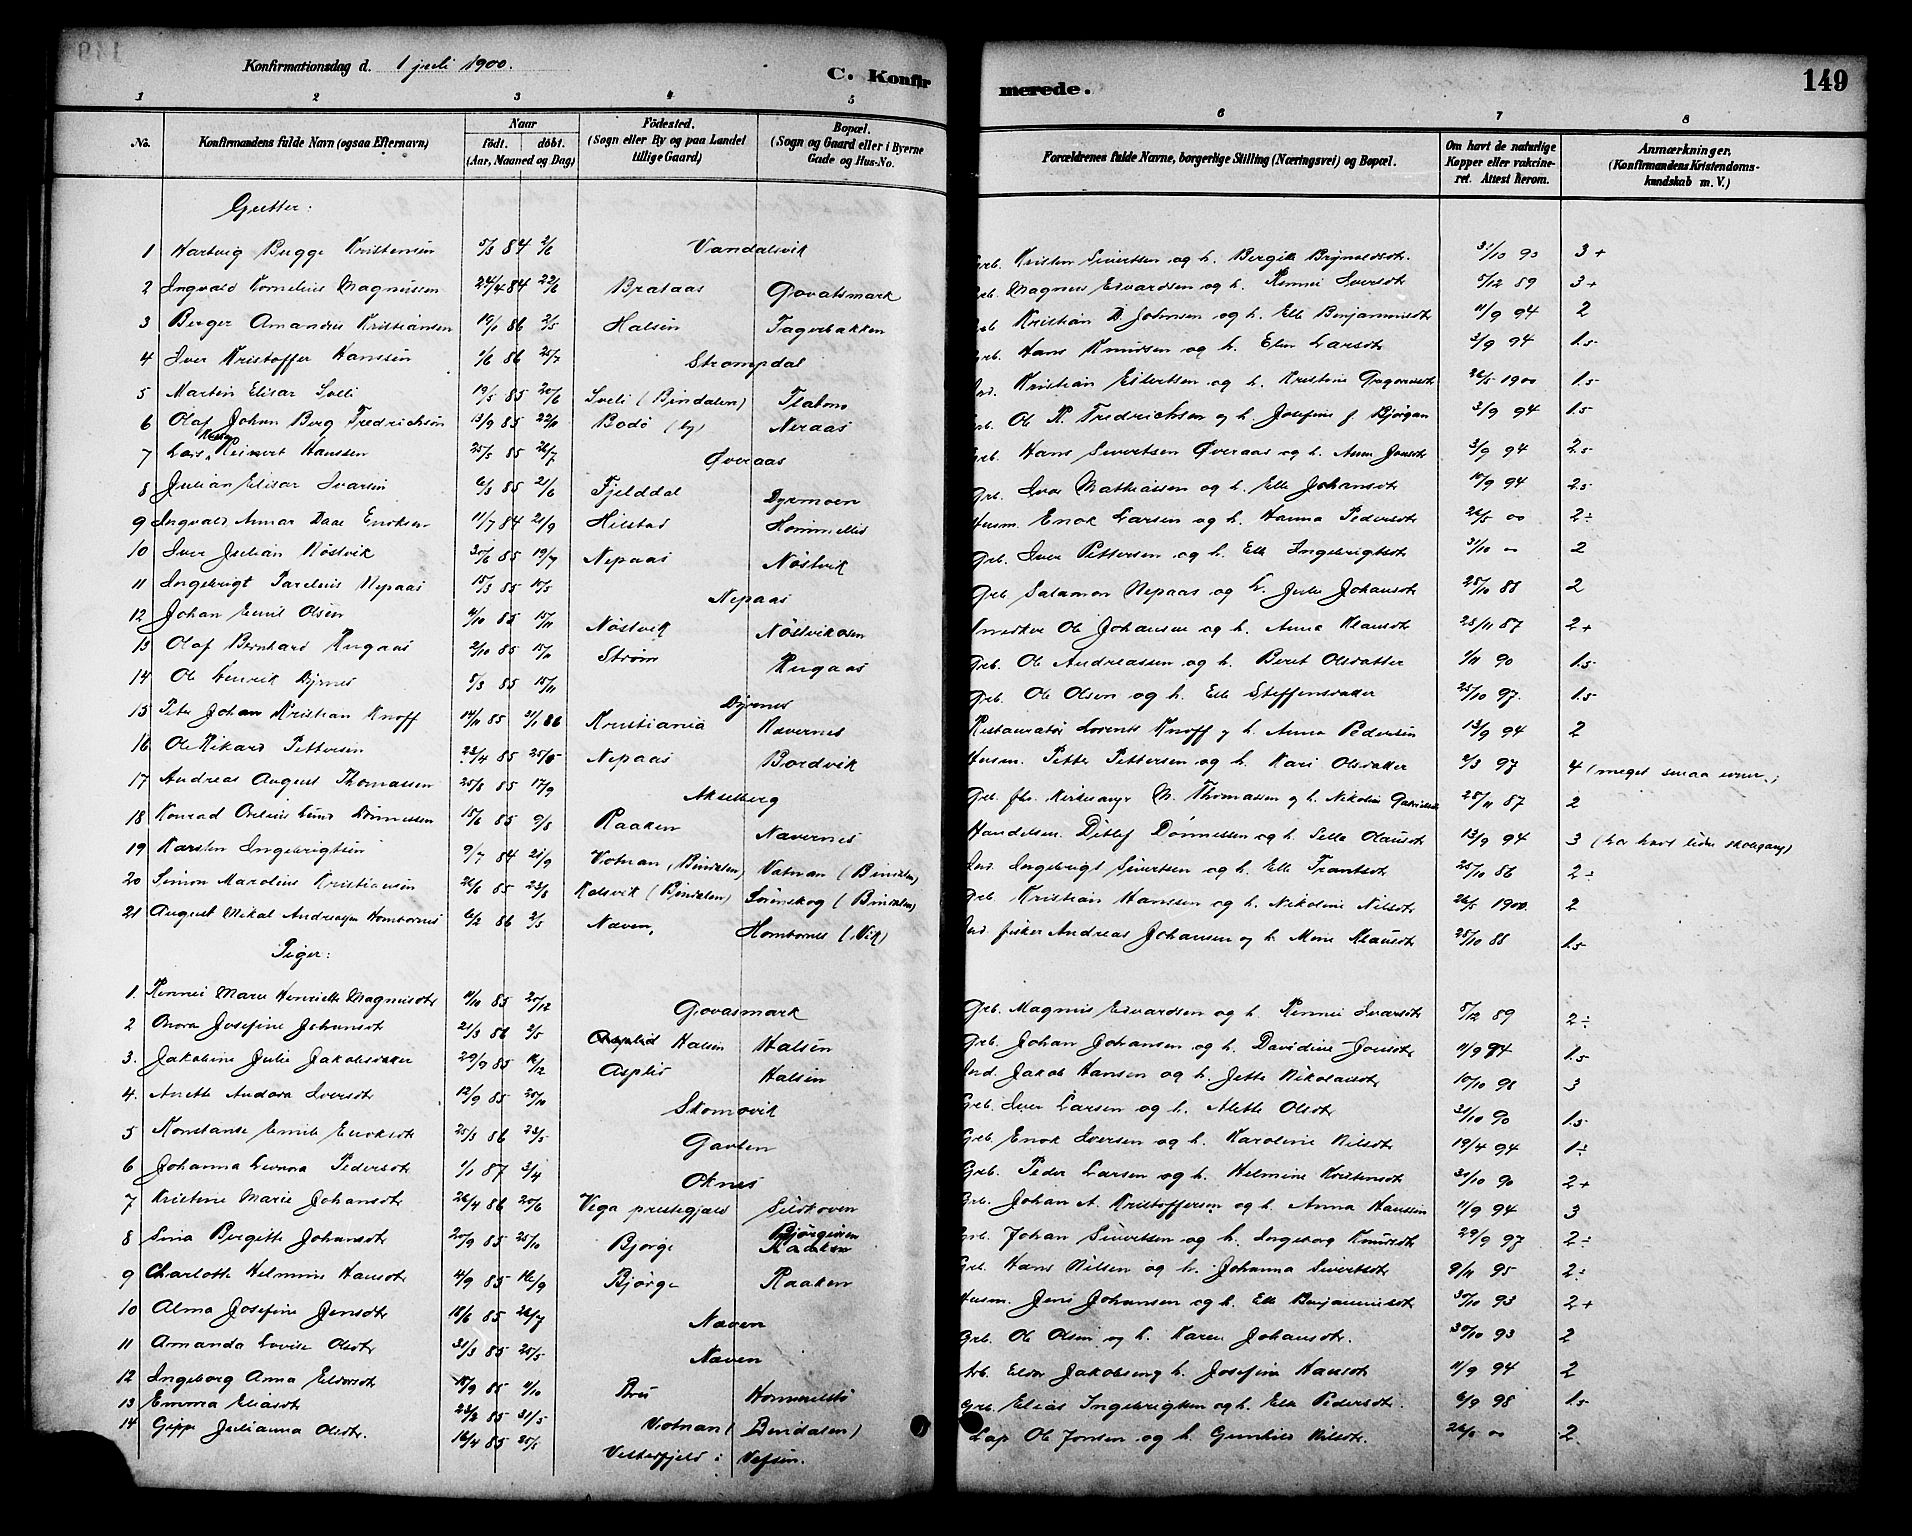 Konfirmationsdag d. 1 juli 1900.
C. Konfir
merede.
149
1 2 3 4 5 6 7 8
No. Konfirmandens fulde Navn (ogsaa Efternavn) Naar født. døbt. (Aar, Maaned og Dag) Fødested. (Sogn eller By og paa Landet tillige Gaard) Bopæl. (Sogn og Gaard eller i Byerne Gade og Hus-No. Forældrenes fulde Navne, borgerlige Stilling (Næringsvei) og Bopæl. Om havt de naturlige Kopper eller vakcineret. Attest herom. Anmærkninger, (Konfirmandens Kristendomskundskab m. V.)
Gutter:
1 Hartvig Bugge Kristensen 5/3 84 2/6 Vandalsvik Grb. Kristen Sivertsen og h. Bergitte Brynildsdt. 31/10 90 3+
2 Ingvald Cornelius Magnussen 24/4 84 22/6 Brataas Govatsmark Grb. Magnus Edvardsen og h. Rennei Iversdt 5/12 89 3+
3 Berger Amandus Kristiansen 19/1 86 2/5 Halsen Grb Kristian D. Johnsen og h. Elle Benjaminsdt 11/9 94 2
4 Iver Kristoffer Hanssen 1/6 86 25/7 Strompdal Grb. Hans Knudsen og h. Elen Larsdt 3/9 94 1.5
5 Martin Elisar Sveli 19/5 85 20/6 Sveli (Bindalen) Ind. Kristian Eilertsen og h. Kristine 26/5 1900 1.5
6 Olaf Johan Berg Fredriksen 13/9 85 22/11 Bodø (by) Neraas Grb. Ole P. Fredrichsen og h. Josefine f. Bjørgan 3/9 94 1.5
7 Lars Reinert Hanssen 25/5 85 26/7 Øveraas Grb. Hans Sivertsen Øveraas og h. Anne Jonsdt 3/9 94 2.5
8 Julian Elisar Ivarsen 6/3 85 21/6 Fjelddal Dyrmoen Grb. Ivar Mathiassen og h. Elle Johansdt 10/9 94 2.5
9 Ingvald Annar Daae Enoksen 11/7 84 21/9 Hilstad Husm. Enok Larsen og h. Hanna Pedersdt 26/5 00 2÷
10 Iver Julian Nøstvik 30/6 85 19/7 Nepaas Nøstvik Grb. Iver Pettersen og h. Elle Ingebrigtsdt 31/10 00 2
11 Ingebrigt Parelius Nepaas 15/3 85 Nepaas Grb Salamon Nepaas og h. Julie Johansdt 25/10 88 2
12 Johan Emil Olsen 4/10 85 15/11 Nøstvik Nøstvikosen Ole Johansen og h. Anna Klausdt 23/11 87 2+
13 Olaf Bernhard Hugaas 2/10 85 Strøm Hugaas Grb. Ole Andreassen og h. Beret Olsdatter 1/11 90 1.5
14 Ole Henrik Dyrnes 5/3 85 15/11 Dyrnes Grb. Ole Olsen og h. Elle Steffensdatter 25/10 97. 1.5
15 Peter Johan Kristian Knoff 14/11 85 21/1 86 Kristiania Nævernes Restauratør Lorents Knoff og h. Anna Pedersen 13/9 94 2
16 Ole Rikard Pettersen 23/4 85 Nepaas Bordvik Husm. Petter Pettersen og h. Kari Olsdatter 2/3 97 4 (meget smaa evner.)
17 Andreas August Thomassen 25/8 85 17/9 Akselberg Grb. fhv. Kirkesanger N. Thomassen og h. Nikoline 25/11 87 2
18 Konrad Lund Dønnessen 15/6 85 9/8 Raaken Nævernes Handelsm. Ditlef Dønnessen og h. Olausdt 13/9 94 3 (har havt liden skolegang)
19 Karsten Ingebrigtsen 9/7 84 21/9 Votnan (Bindalen) Vatnan (Bindalen) Ind. Ingebrigt Sivertsen og h. Elle Frantsdt 25/10 86 2÷
20 Simon Marolius Kristiansen 26/6 85 23/8 Kalsvik (Bindalen) Sørenskog (Bindalen) Grb. Kristian Hanssen og h. Nikoline Nilsdt 26/5 1900 2
21 August Mikal Andreassen Hombornes 6/2 86 2/5 Næven, Hombornes (Vik) Ind fisker Andreas Johansen og h. Mine Klausdt 25/10 88 1.5
Piger:
1. Rennei Marie Henriette Magnusdt 11/10 85 20/12 Govasmark Grb. Magnus Edvardsen og h. Rennei Ivarsdt 5/12 89 2÷
2 Nora Josefine Johansdt 21/3 86 2/5 Halsen Halsen Grb. Johan Johansen og h. Davidine Jonsdt 11/9 94 1.5
3. Jakobine Julie Jakobsdatter 29/9 85 Asplid Halsen Ind. Jakob Hansen og h. Jette Nikolausdt 10/10 98 3
4. Anette Andora Iversdt 12/9 85 25/10 Skomovik Grb. Iver Larsen og h. Alette Olsdt 31/10 90 1.5
5 Konstanse Emilie Enoksdt 25/3 86 23/5 Gaasten Grb. Enok Iversen og h. Karoline Nilsdt 19/4 94 1÷
6 Johanna Leonora Pedersdt 1/1 87 3/4 Oknes Grb. Peder Larsen og h. Helmine Kristensdt 31/10 90 2+
7 Kristine Marie Johansdt 26/4 86 20/6 Vega prestegjæld Sildhoven Grb. Johan A. Kristoffersen og h. Anna Hanssen 11/9 94 3
8 Sina Bergitte Johansdt 20/9 85 25/10 Bjørge Raaken Grb. Johan Sivertsen og h. Ingeborg Knudsdt 29/9 97 2÷
9 Charlotte Helmine Hansdt 4/9 85 16/9 Bjørge Raaken Grb. Hans Nilsen og h. Johanna Sivertsdt 9/11 95 2÷
10 Alma Josefine Jensdt 18/6 85 26/7 Næven Husm. Jens Johansen og h. Elle Benjaminsdt 30/10 93 2+
11 Amanda Lovise Olsdt 31/3 85 25/5 Næven Grb. Ole Olsen og h. Karen Johansdt. 30/10 93 2
12 Ingeborg Anna Eldersdt 15/9 85 4/10 Bru Hommelstø Arb. Elder Jakobsen og h. Josefine Hansdt 11/9 94 2
13 Emma Eliasdt 23/3 85 31/5 Votnan (Bindalen) Grb. Elias Ingebrigtsen og h. Elle Pedersdt. 6/9 98 1.5
14 Gippe Julianna Olsdt. 16/4 85 Vesterfjeld i Vefsen. Lap Ole Jonsen og h. Gunhild Nilsdt. 2.